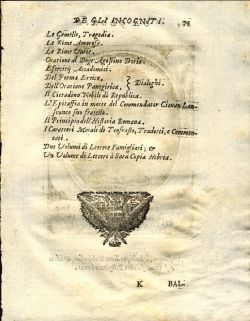 DE GLI INCOGNITI. 76
Le Gemelle, Tragedia.
Le Rime Amorose.
Le Rime Varie.
Oratione al Doge Agostino Doria.
Essercitij Accademici.
Del Poema Eroico,
Dell'Oratione Panegirica, } Dialoghi.
Il Cittadino Nobile di Republica.
L'Epitaffio in morte del Commendator Giovan Lan-
franco suo fratello.
Il Principio dell'Historia Romana.
I Caratteri Morali di Teofrasto, Tradotti, e Commen-
tati.
Due Volumi di Lettere Famigliari; &
Un Volume di Lettere à Sara Copia Hebrea.
K BAL-